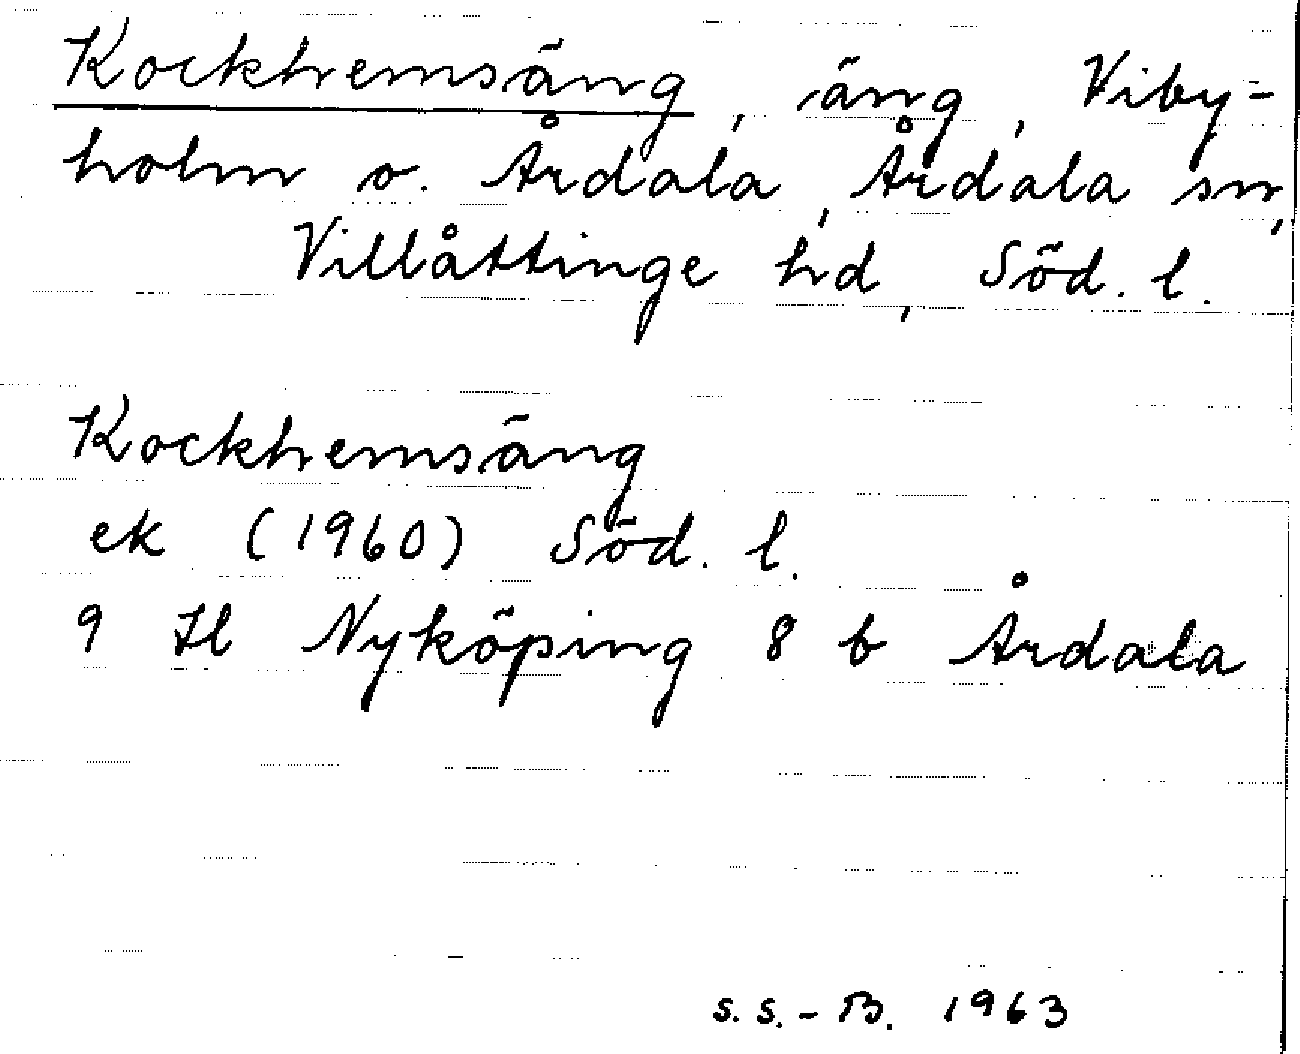 Kockhemsäng, äng, Viby-
holm o. Årdala, Årdala sn,
Villåttinge hd, Söd. l.
Kockhemsäng
ek (1960) Söd. l.
9 H Nyköping 8 b Årdala
S.S.-B. 1963